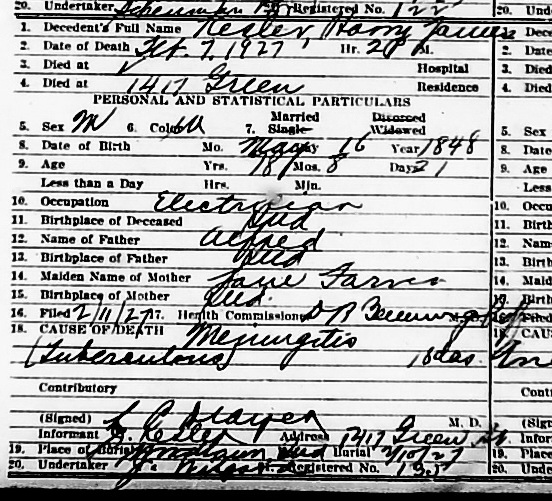 20. Undertaker Registered No. 122
1. Decedent's Full Name Kesler Harry James
2. Date of Death Feb. 7, 1927 Hr. 2 P M.
3. Died at Hospital
4. Died at 1417 Green Residence
PERSONAL AND STATISTICAL PARTICULARS
Married Divorced
5. Sex M 6. Color W 7. Single Widowed
8. Date of Birth Mo. May Day 16 Year 1848
9. Age Yrs. 78 Mos. 8 Days 21
Less than a Day Hrs. Min.
10. Occupation Electrician
11. Birthplace of Deceased Ind
12. Name of Father Alfred
13. Birthplace of Father Ind
14. Maiden Name of Mother Jane
15. Birthplace of Mother Ind.
16. Filed 2/11/27 17. Health Commissioner
18. CAUSE OF DEATH Meningitis
(Tuberculous) 18 das.
Contributory
(Signed) M. D.
Informant Kesler Address 1417 Green St
19. Place of Burial Ind Burial 2/10/27
20. Undertaker Registered No.
20. Unde
1. Dece
2. Date
3. Died
4. Died
5. Sex
8. Date
9. Age
Less
10. Occu
11. Birth
12. Nam
13. Birth
14. Maid
15. Birth
16. Filed
18. CAUS
Cont
(Sign
Infor
19. Place
20. Unde